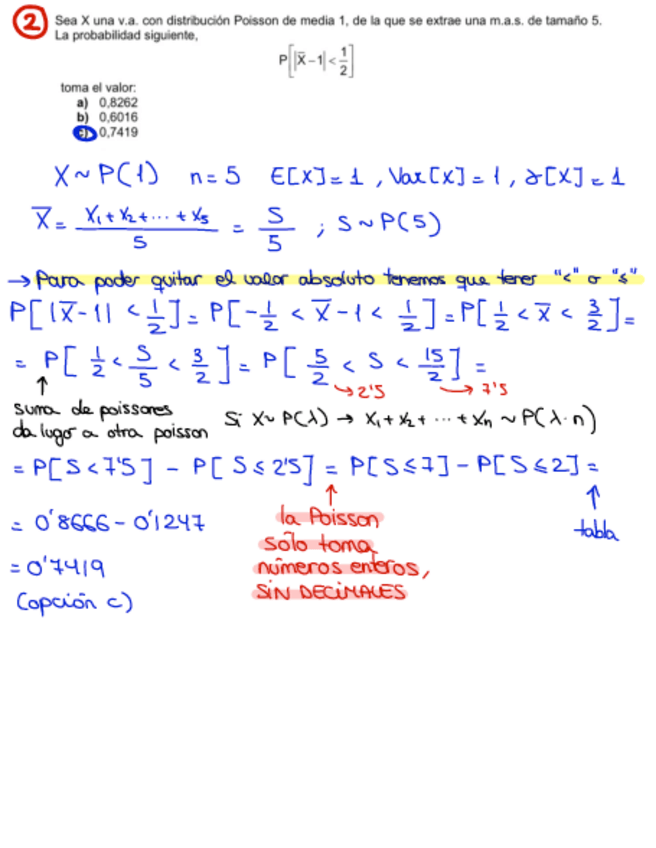 2 Sea X una v.a. con distribución Poisson de media 1, de la que se extrae una m.a.s. de tamaño 5.
La probabilidad siguiente,
P[|X̄-1|<1/2]
toma el valor:
a) 0,8262
b) 0,6016
c) 0,7419
X~P(1) n=5 E[X]=1, Var[X]=1, γ[X]=1
X̄ = (X₁+X₂+...+X₅)/5 = S/5 ; S~P(5)
→ Para poder quitar el valor absoluto tenemos que tener "<" o "≤"
P[|X̄-1| < 1/2] = P[-1/2 < X̄-1 < 1/2] = P[1/2 < X̄ < 3/2] =
= P[1/2 < S/5 < 3/2] = P[5/2 < S < 15/2] =
↑ →2'5 →7'5
suma de poissones
da lugar a otra poisson Si X~P(λ) → X₁+X₂+...+Xn ~ P(λ·n)
= P[S<7'5] - P[S≤2'5] = P[S≤7] - P[S≤2] =
= 0'8666 - 0'1247
↑ la Poisson
sólo toma
números enteros,
SIN DECIMALES
↑ tabla
= 0'7419
(opción c)